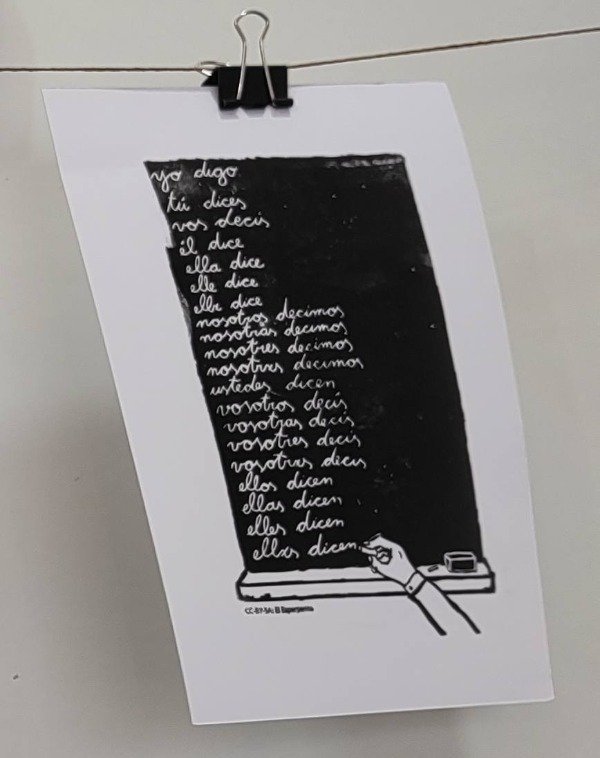 yo digo
tú dices
vos decís
él dice
ella dice
elle dice
ellx dice
nosotros decimos
nosotras decimos
nosotres decimos
nosotrxs decimos
ustedes dicen
vosotros decís
vosotras decís
vosotres decís
vosotrxs decís
ellos dicen
ellas dicen
elles dicen
ellxs dicen
CC-BY-SA: El